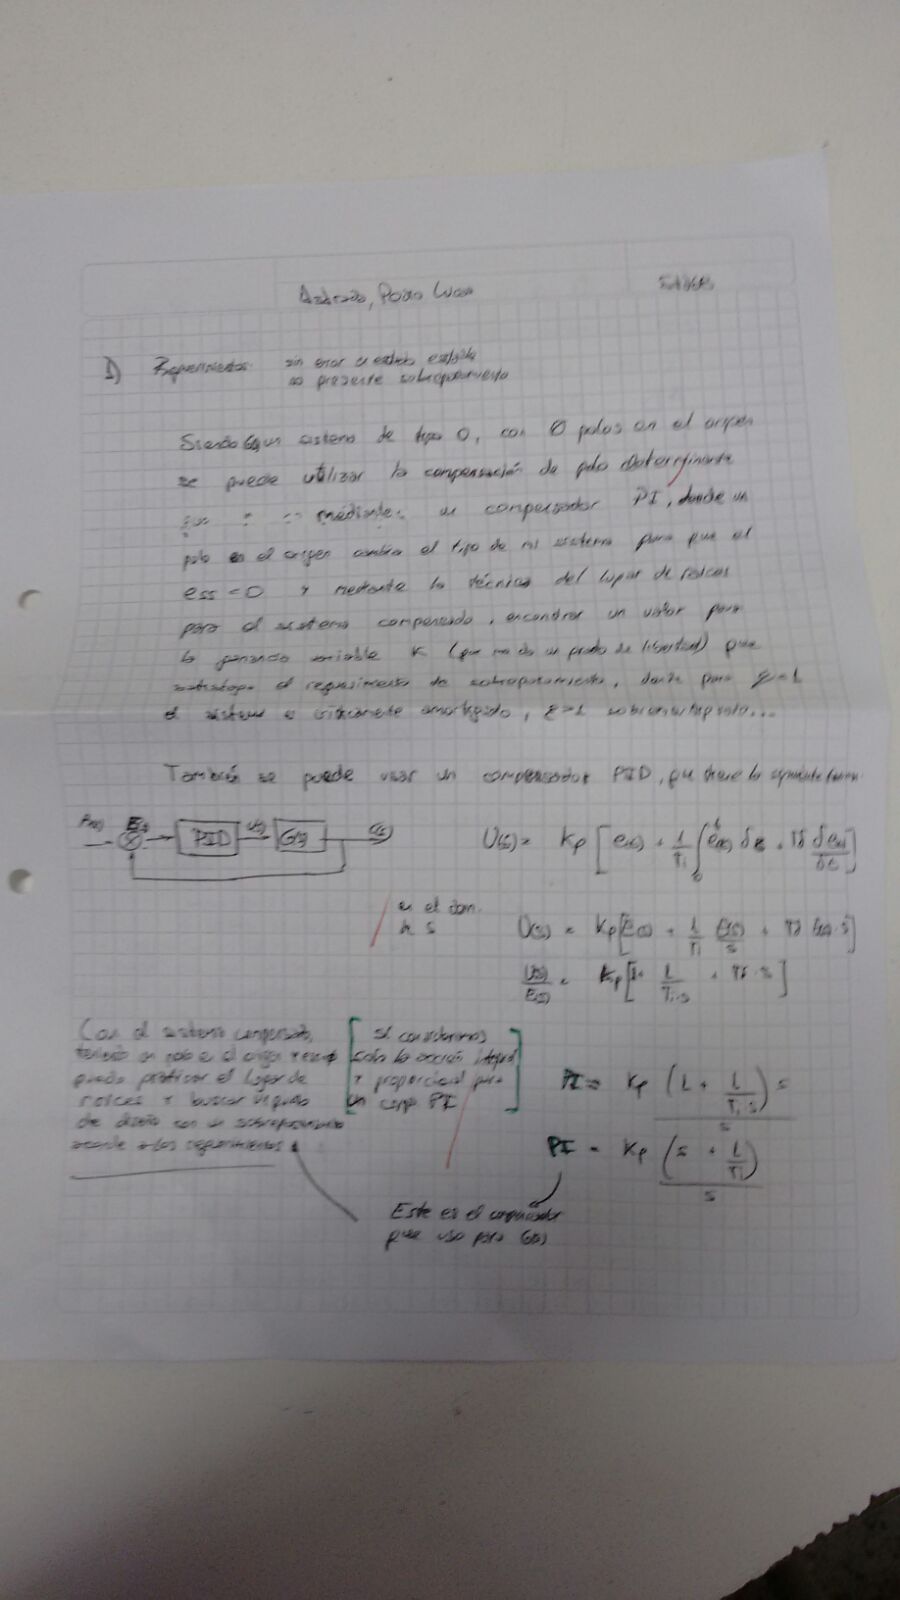 Pedro Lucas
1) Requerimientos: sin error en estado estable
no presente sobrepasamiento
Siendo G(s) un sistema de tipo 0, con 0 polos en el origen
se puede utilizar la compensación de polo determinante
mediante un compensador PI, donde un
polo en el origen cambia el tipo de mi sistema para que el
ess = 0 y mediante la técnica del lugar de raíces
para el sistema compensado, encontrar un valor para
la ganancia variable K (que me da un grado de libertad) que
satisfaga el requerimiento de sobrepasamiento, donde para ξ=1
el sistema es críticamente amortiguado, ξ>1
También se puede usar un compensador PID, que tiene la siguiente forma
E(s) PID U(s) G(s) C(s)
U(s) = Kp [ e(t) + 1/Ti ∫0^t e(t) dt + Td de(t)/dt ]
en el dom.
U(s) = Kp [ E(s) + 1/Ti E(s)/s + Td E(s)·s ]
U(s)/E(s) = Kp [ 1 + 1/Ti·s + Td·s ]
Con el sistema compensado,
teniendo un polo en el origen
puedo graficar el lugar de
raíces y buscar un punto
de diseño con un sobrepasamiento
acorde a los requerimientos.
Si consideramos
solo la acción integral
y proporcional para
un comp PI
PI = Kp (1 + 1/Ti·s) s / s
PI = Kp (s + 1/Ti) / s
Este es el compensador
que uso para G(s)